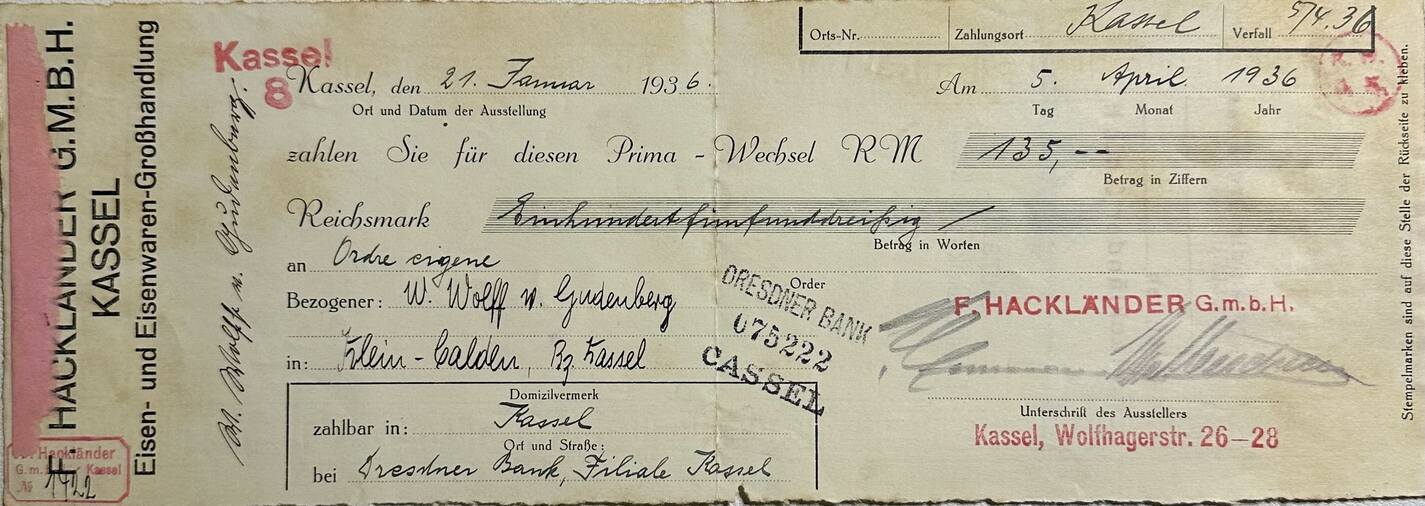 F. HACKLÄNDER G.M.B.H.
KASSEL
Eisen- und Eisenwaren-Großhandlung
Hackländer
G.m. Kassel
№ 1422
W. Wolff v. Gudenberg.
Kassel
8
Orts-Nr. Zahlungsort Kassel Verfall 5/4.36
Kassel, den 21. Januar 1936.
Ort und Datum der Ausstellung
Am 5. April 1936
Tag Monat Jahr
zahlen Sie für diesen Prima-Wechsel RM 135,--
Betrag in Ziffern
Reichsmark Einhundertfünfunddreißig
Betrag in Worten
an Ordre eigene
Order
Bezogener: W. Wolff v. Gudenberg
in: Klein-Calden, Bz. Kassel
Domizilvermerk
zahlbar in: Kassel
Ort und Straße:
bei Dresdner Bank, Filiale Kassel
DRESDNER BANK
075222
CASSEL
F. HACKLÄNDER G.m.b.H.
Unterschrift des Ausstellers
Kassel, Wolfhagerstr. 26-28
Stempelmarken sind auf diese Stelle der Rückseite zu kleben.